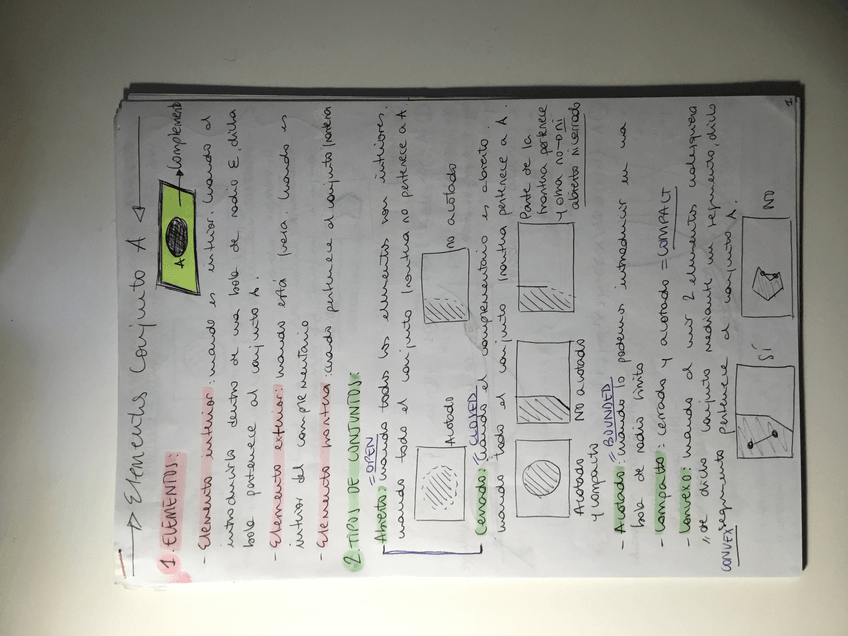 → Elementos Conjunto A ←
1. ELEMENTOS:
A → Complemento
- Elemento interior: cuando es interior. cuando al
introducirlo dentro de una bola de radio ε, dicha
bola pertenece al conjunto A.
- Elemento exterior: cuando está fuera. cuando es
interior del complementario
- Elemento frontera: cuando pertenece al conjunto frontera
2. TIPOS DE CONJUNTOS:
= OPEN
Abierto: cuando todos los elementos son interiores.
cuando todo el conjunto frontera no pertenece a A
Acotado
no acotado
= CLOSED
Cerrado: cuando el complementario es abierto.
cuando todo el conjunto frontera pertenece a A.
Acotado
y compacto
NO acotado
Parte de la
frontera pertenece
y otra no → ni
abierto ni cerrado
= BOUNDED
- Acotado: cuando lo podemos introducir en una
bola de radio finito
- Compacto: cerrado y acotado = COMPACT
- Convexo: cuando al unir 2 elementos cualesquiera
de dicho conjunto mediante un segmento, dicho
CONVEX segmento pertenece al conjunto A.
SÍ
NO
1